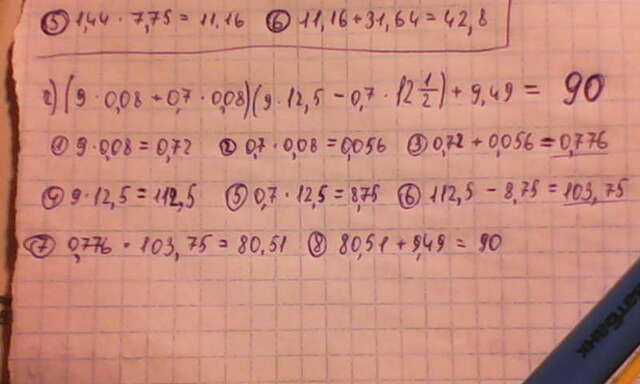 ⑤ 1,44 · 7,75 = 11.16 ⑥ 11,16 + 31,64 = 42,8
г) (9 · 0,08 + 0,7 · 0,08) (9 · 12,5 - 0,7 · 12 1/2) + 9,49 = 90
① 9 · 0,08 = 0,72 ② 0,7 · 0,08 = 0,056 ③ 0,72 + 0,056 = 0,776
④ 9 · 12,5 = 112,5 ⑤ 0,7 · 12,5 = 8,75 ⑥ 112,5 - 8,75 = 103,75
⑦ 0,776 · 103,75 = 80,51 ⑧ 80,51 + 9,49 = 90